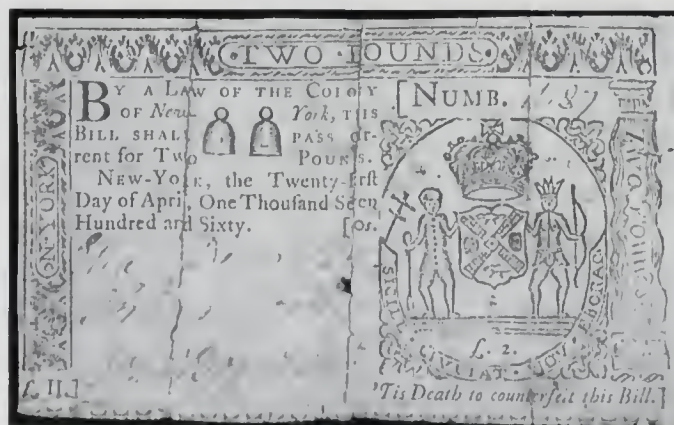 TWO POUNDS
BY A LAW OF THE COLONY
OF New York, THIS
BILL SHALL PASS
rent for TWO POUNDS.
NEW-YORK, the Twenty-first
Day of April, One Thousand Seven
Hundred and Sixty. [os.
[NUMB.
L. 2.
£. II.]
'Tis Death to counterfeit this Bill.]